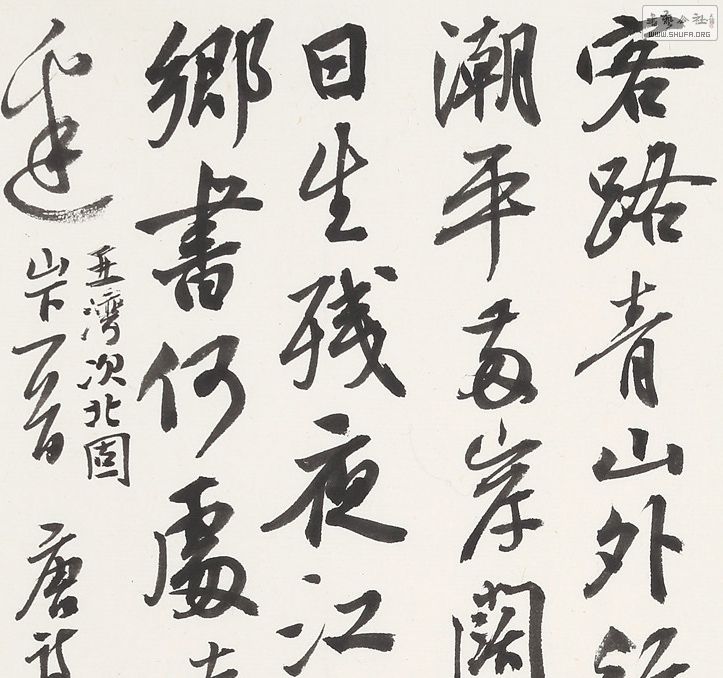 客路青山外行
潮平兩岸闊
日生残夜江
鄉書何處
邊
王灣次北固
山下一首 唐詩
WWW.SHUFA.ORG